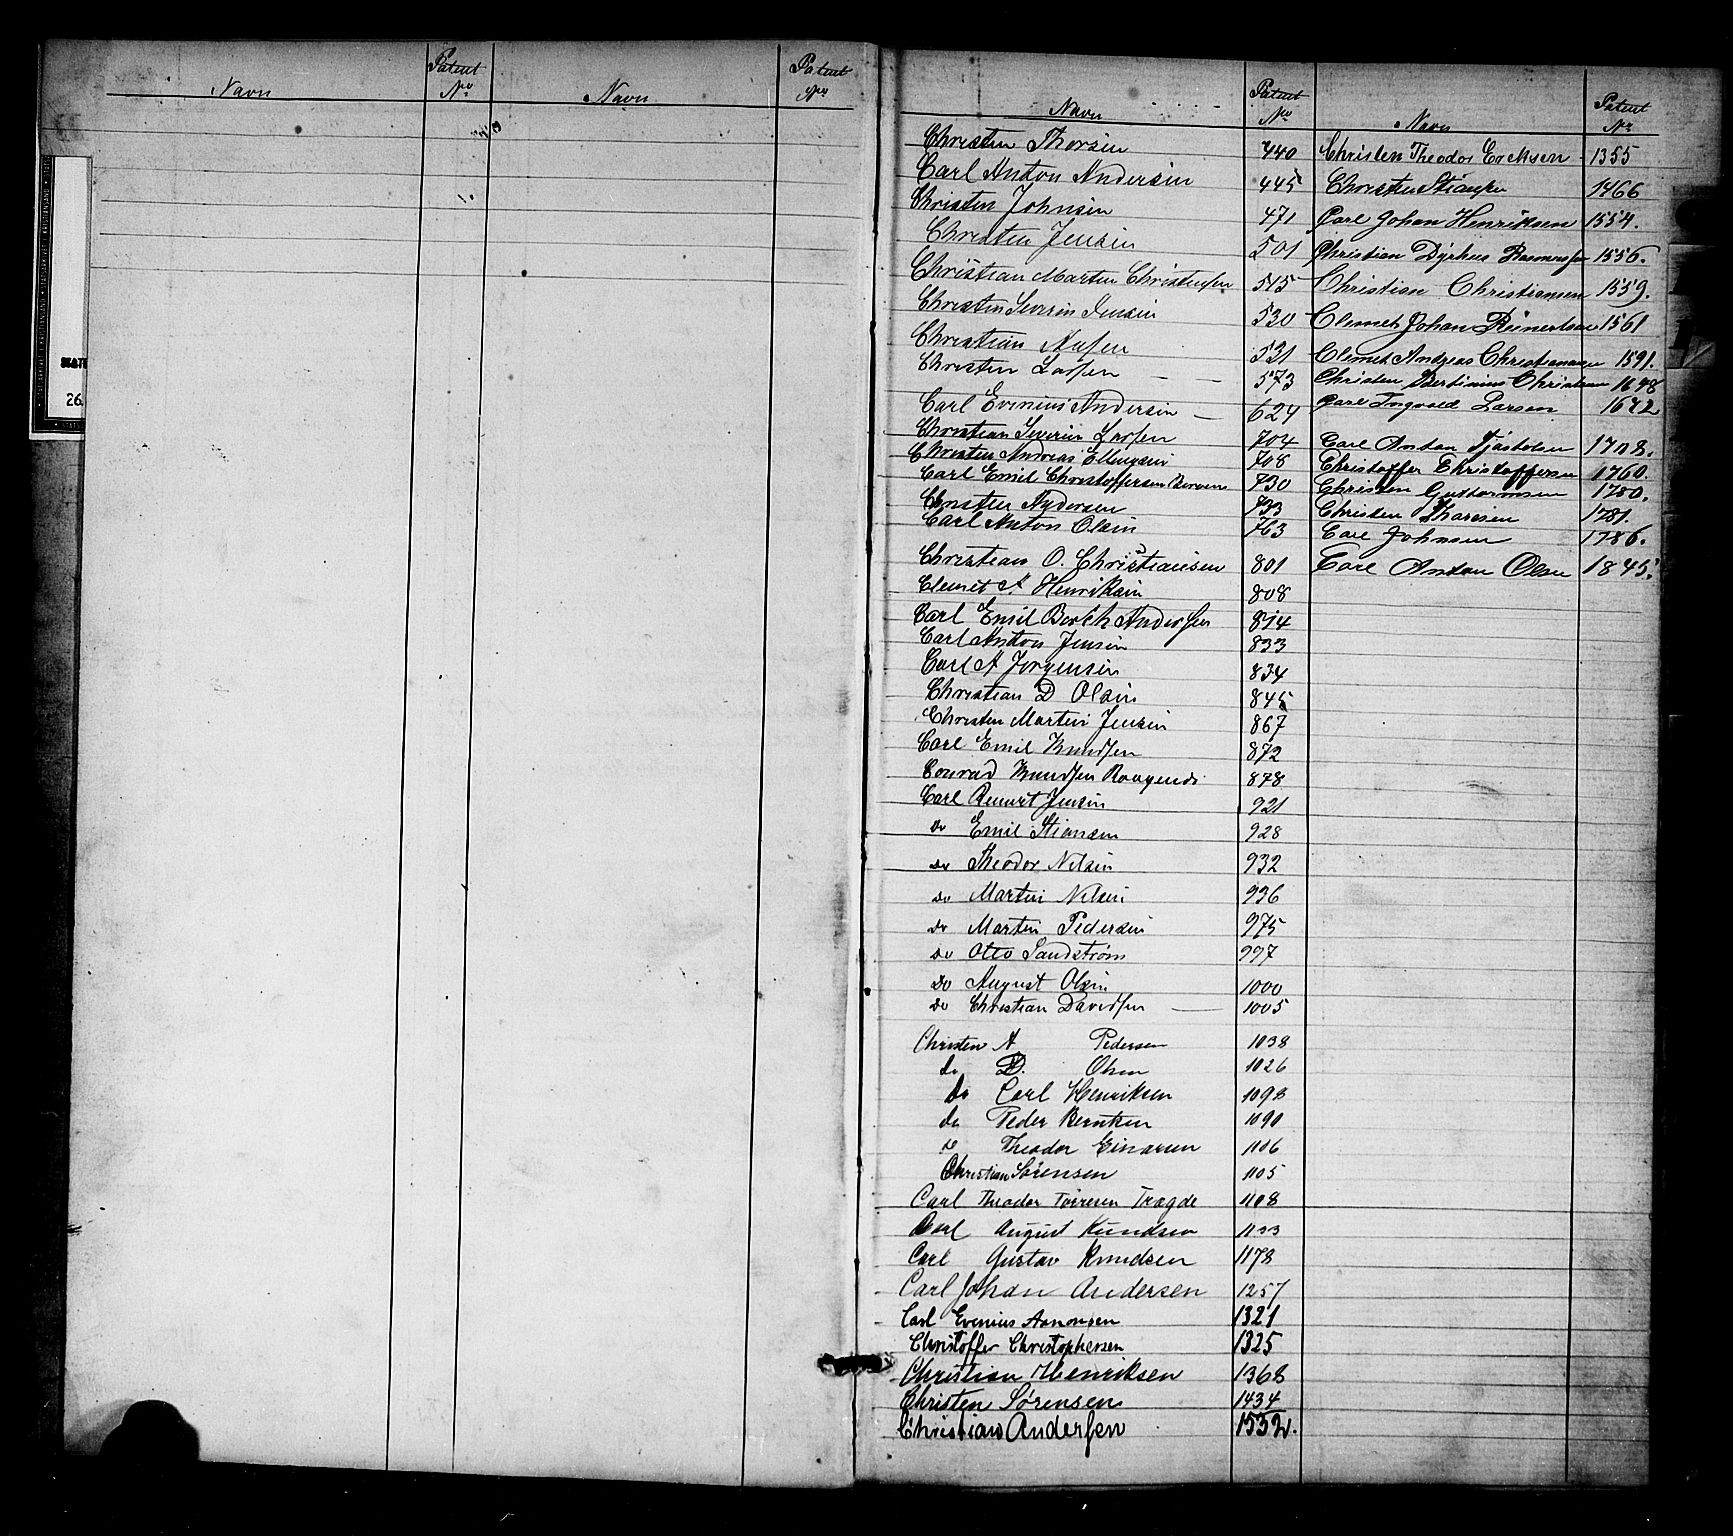 Navn Patent No Navn Patent No
Navn Patent No Navn Patent No
Christen Thorsen 440
Carl Anton Andersen 445
Christen Johnsen 471
Christen Jensen 501
Christian Marten Christensen 515
Christen Severin Jensen 530
Christian 521
Christen Larsen 573
Carl Evenius Andersen 624
Christian Severin Larsen 704
Christen Andreas Ellingsen 708
Carl Emil Christoffersen 730
Christen Aydersen 733
Carl Anton Olsen 763
Christian O. Christiansen 801
Clemet A Henriksen 808
Carl Emil Berth Andersen 814
Carl Anton Jensen 833
Carl A Jörgensen 834
Christian D Olsen 845
Christen Martin Jensen 867
Carl Emil Knudsen 872
Conrad Knudsen 878
Carl Jensen 921
Do Emil Stiansen 928
Do Theodor Nilsen 932
Do Martin Nilsen 936
Do Martin Pedersen 975
Do Otto Sandström 997
Do August Olsen 1000
Do Christian Davidsen 1005
Christen A Pedersen 1038
do D. Olsen 1026
do Carl Henriksen 1098
do Peder Berntsen 1090
do Theodor Einarsen 1106
Christian Sørensen 1105
Carl Theodor Torresen Tragde 1108
Carl August Kundsen 1133
Carl Gustav Knudsen 1178
Carl Johan Andersen 1257
Carl Evenius Aanonsen 1321
Christoffer Christophersen 1325
Christian Henriksen 1368
Christen Sørensen 1434
Christian Andersen 1532.
Christen Theodor Ericksen 1355
Christen Stiansen 1466
Carl Johan Henriksen 1554.
Christian Dyrhus Rasmussen 1556.
Christian Christiansen 1559.
Clemet Johan Reinertsen 1561
Clemet Andreas Christiansen 1591.
Christen Bertinius Christensen 1648
Carl Ingvald Larsen 1642
Carl Anton Tjøstolsen 1708.
Christoffer Christoffersen 1760.
Christen Guttormsen 1780.
Christen Thorsen 1781.
Carl Johnsen 1786.
Carl Anton Olsen 1845.
26.